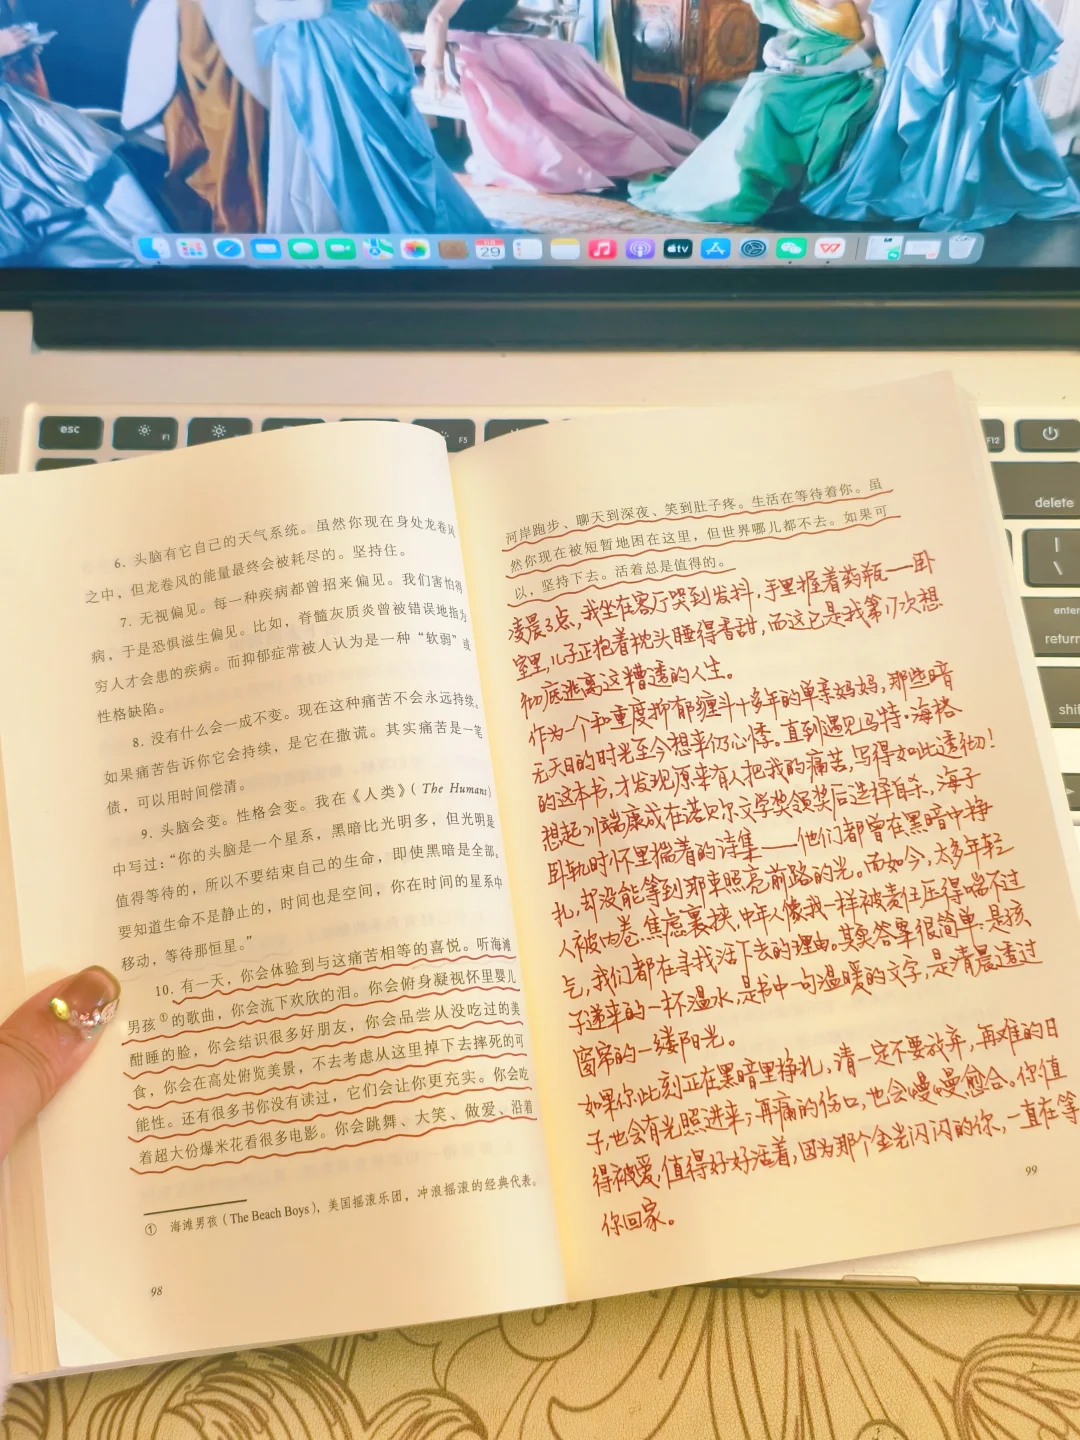 29
tv
esc
F1
F5
F12
delete
enter
return
shift
6. 头脑有它自己的天气系统。虽然你现在身处龙卷风
之中，但龙卷风的能量最终会被耗尽的。坚持住。
7. 无视偏见。每一种疾病都曾招来偏见。我们害怕得
病，于是恐惧滋生偏见。比如，脊髓灰质炎曾被错误地指为
穷人才会患的疾病。而抑郁症常被人认为是一种“软弱”或
性格缺陷。
8. 没有什么会一成不变。现在这种痛苦不会永远持续。
如果痛苦告诉你它会持续，是它在撒谎。其实痛苦是一笔
债，可以用时间偿清。
9. 头脑会变。性格会变。我在《人类》（The Humans）
中写过：“你的头脑是一个星系，黑暗比光明多，但光明是
值得等待的，所以不要结束自己的生命，即使黑暗是全部。
要知道生命不是静止的，时间也是空间，你在时间的星系中
移动，等待那恒星。”
10. 有一天，你会体验到与这痛苦相等的喜悦。听海滩
男孩①的歌曲，你会流下欢欣的泪。你会俯身凝视怀里婴儿
酣睡的脸，你会结识很多好朋友，你会品尝从没吃过的美
食，你会在高处俯览美景，不去考虑从这里掉下去摔死的可
能性。还有很多书你没有读过，它们会让你更充实。你会吃
着超大份爆米花看很多电影。你会跳舞、大笑、做爱、沿着
① 海滩男孩（The Beach Boys），美国摇滚乐团，冲浪摇滚的经典代表。
98
河岸跑步、聊天到深夜、笑到肚子疼。生活在等待着你。虽
然你现在被短暂地困在这里，但世界哪儿都不去。如果可
以，坚持下去。活着总是值得的。
凌晨3点，我坐在客厅哭到发抖，手里握着药瓶——卧
室里，儿子正抱着枕头睡得香甜，而这已是我第17次想
彻底逃离这糟透的人生。
作为一个和重度抑郁缠斗十多年的单亲妈妈，那些暗
无天日的时光至今想来仍心悸。直到遇见马特·海格
的这本书，才发现原来有人把我的痛苦，写得如此透彻！
想起川端康成在诺贝尔文学奖领奖后选择自杀，海子
卧轨时怀里揣着的诗集——他们都曾在黑暗中挣
扎，却没能等到那束照亮前路的光。而如今，太多年轻
人被内卷、焦虑裹挟，中年人像我一样被责任压得喘不过
气，我们都在寻找活下去的理由。其实答案很简单：是孩
子递来的一杯温水，是书中一句温暖的文字，是清晨透过
窗帘的一缕阳光。
如果你此刻正在黑暗里挣扎，请一定不要放弃，再难的日
子，也会有光照进来；再痛的伤口，也会慢慢愈合。你值
得被爱，值得好好活着，因为那个金光闪闪的你，一直在等
你回家。
99